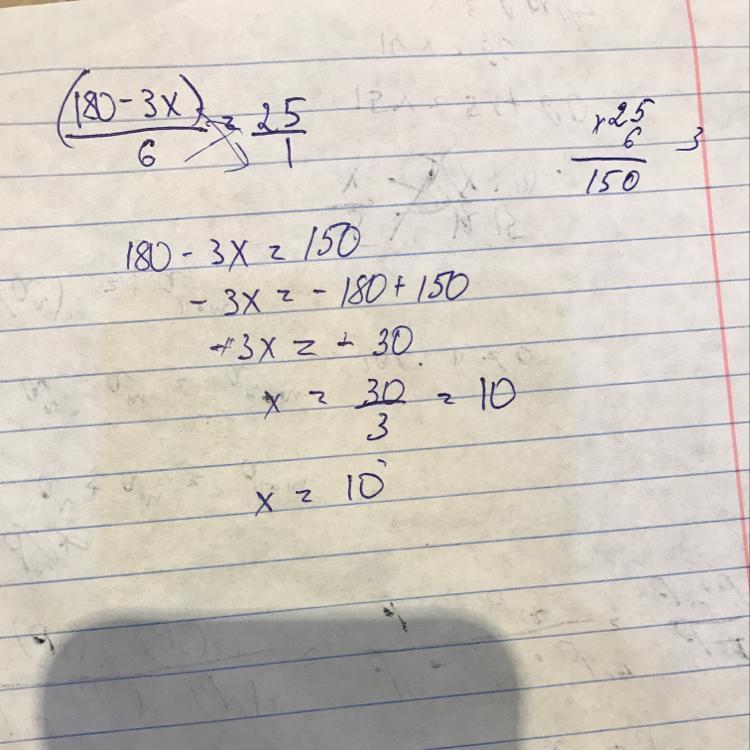 (180 - 3x) = 25
6 1
x 25
6
150
180 - 3x = 150
- 3x = - 180 + 150
+3x = + 30
x = 30 = 10
3
x = 10